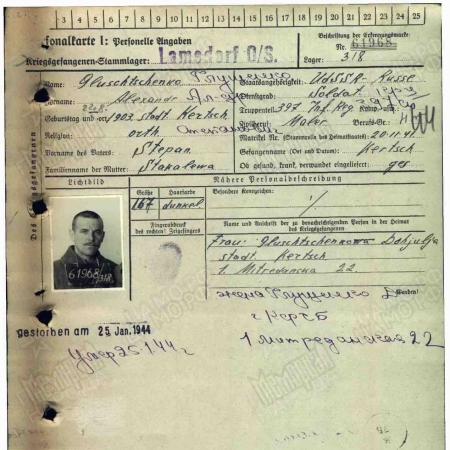 1 2 3 4 5 6 7 8 9 10 11 12 13 14 15 16 17 18 19 20 21 22 23 24 25
Personalkarte I: Personelle Angaben
Kriegsgefangenen-Stammlager: Lamsdorf O/S.
Beschriftung der Erkennungsmarke
Nr. 61968
Lager: 318
Des Kriegsgefangenen
Name: Gluschtschenko Глущенко
Vorname: Alexandr
Geburtstag und -ort 1903 stadt Kertsch
Religion: orth.
Vorname des Vaters: Stepan
Familienname der Mutter: Stakalowa
Staatsangehörigkeit: UdSSR - Russe
Dienstgrad: Soldat
Truppenteil: 397 Inf. Reg.
Zivilberuf: Maler Berufs-Gr.:
Matrikel Nr. (Stammrolle des Heimatstaates): 20.11.41
Gefangennahme (Ort und Datum): Kertsch
Ob gesund, krank, verwundet eingeliefert: ges
Lichtbild
Nähere Personalbeschreibung
Größe Haarfarbe Besondere Kennzeichen:
167 dunkel
Fingerabdruck
des rechten! Zeigefingers
Name und Anschrift der zu benachrichtigenden Person in der Heimat
des Kriegsgefangenen
Frau: Gluschtschenkowa
stadt Kertsch
22
61968
318
жена Глущенко
г Керчь
22
Gestorben am 25. Jan. 1944
Умер 25.1.44 г